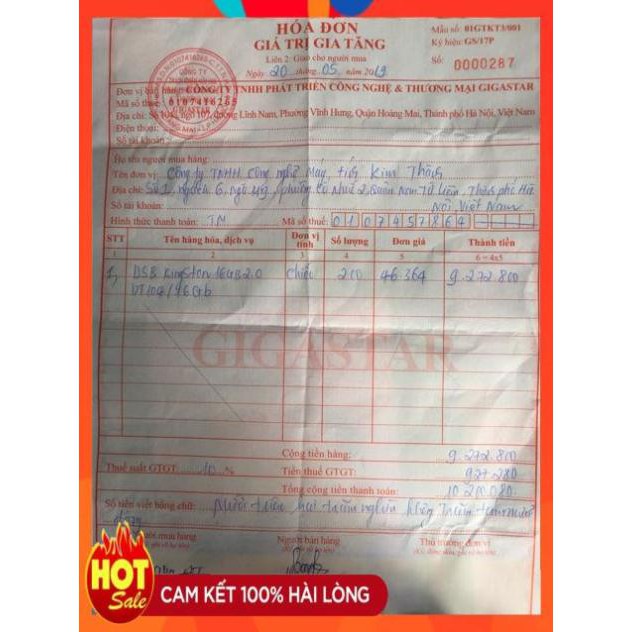 HÓA ĐƠN
GIÁ TRỊ GIA TĂNG
Liên 2: Giao cho người mua
Ngày 20 tháng 05 năm 2019
Mẫu số: 01GTKT3/001
Ký hiệu: GS/17P
Số: 0000287
Đơn vị bán hàng: CÔNG TY TNHH PHÁT TRIỂN CÔNG NGHỆ & THƯƠNG MẠI GIGASTAR
Mã số thuế: 0107416265
Địa chỉ: Lĩnh Nam, Phường Vĩnh Hưng, Quận Hoàng Mai, Thành phố Hà Nội, Việt Nam
Điện thoại:
Số tài khoản:
Họ tên người mua hàng:
Tên đơn vị: Công ty TNHH công nghệ Máy tính Kim Thắng
Địa chỉ: Số 1, ngách 6, ngõ phường Cổ Nhuế 2, Quận Nam Từ Liêm, Thành phố Hà
Số tài khoản: Nội Việt Nam
Hình thức thanh toán: TM Mã số thuế: 0107457864
STT Tên hàng hóa, dịch vụ Đơn vị tính Số lượng Đơn giá Thành tiền
1 2 3 4 5 6 = 4x5
1, USB Kingston 16GB 2.0 chiếc 200 46.364 9.272.800
DT104/16Gb
GIGASTAR
Cộng tiền hàng: 9.272.800
Thuế suất GTGT: 10 % Tiền thuế GTGT: 927.280
Tổng cộng tiền thanh toán: 10.200.080
Số tiền viết bằng chữ: Mười triệu hai trăm nghìn không trăm tám mươi
đồng
Người mua hàng Người bán hàng Thủ trưởng đơn vị
HOT
Sale
CAM KẾT 100% HÀI LÒNG